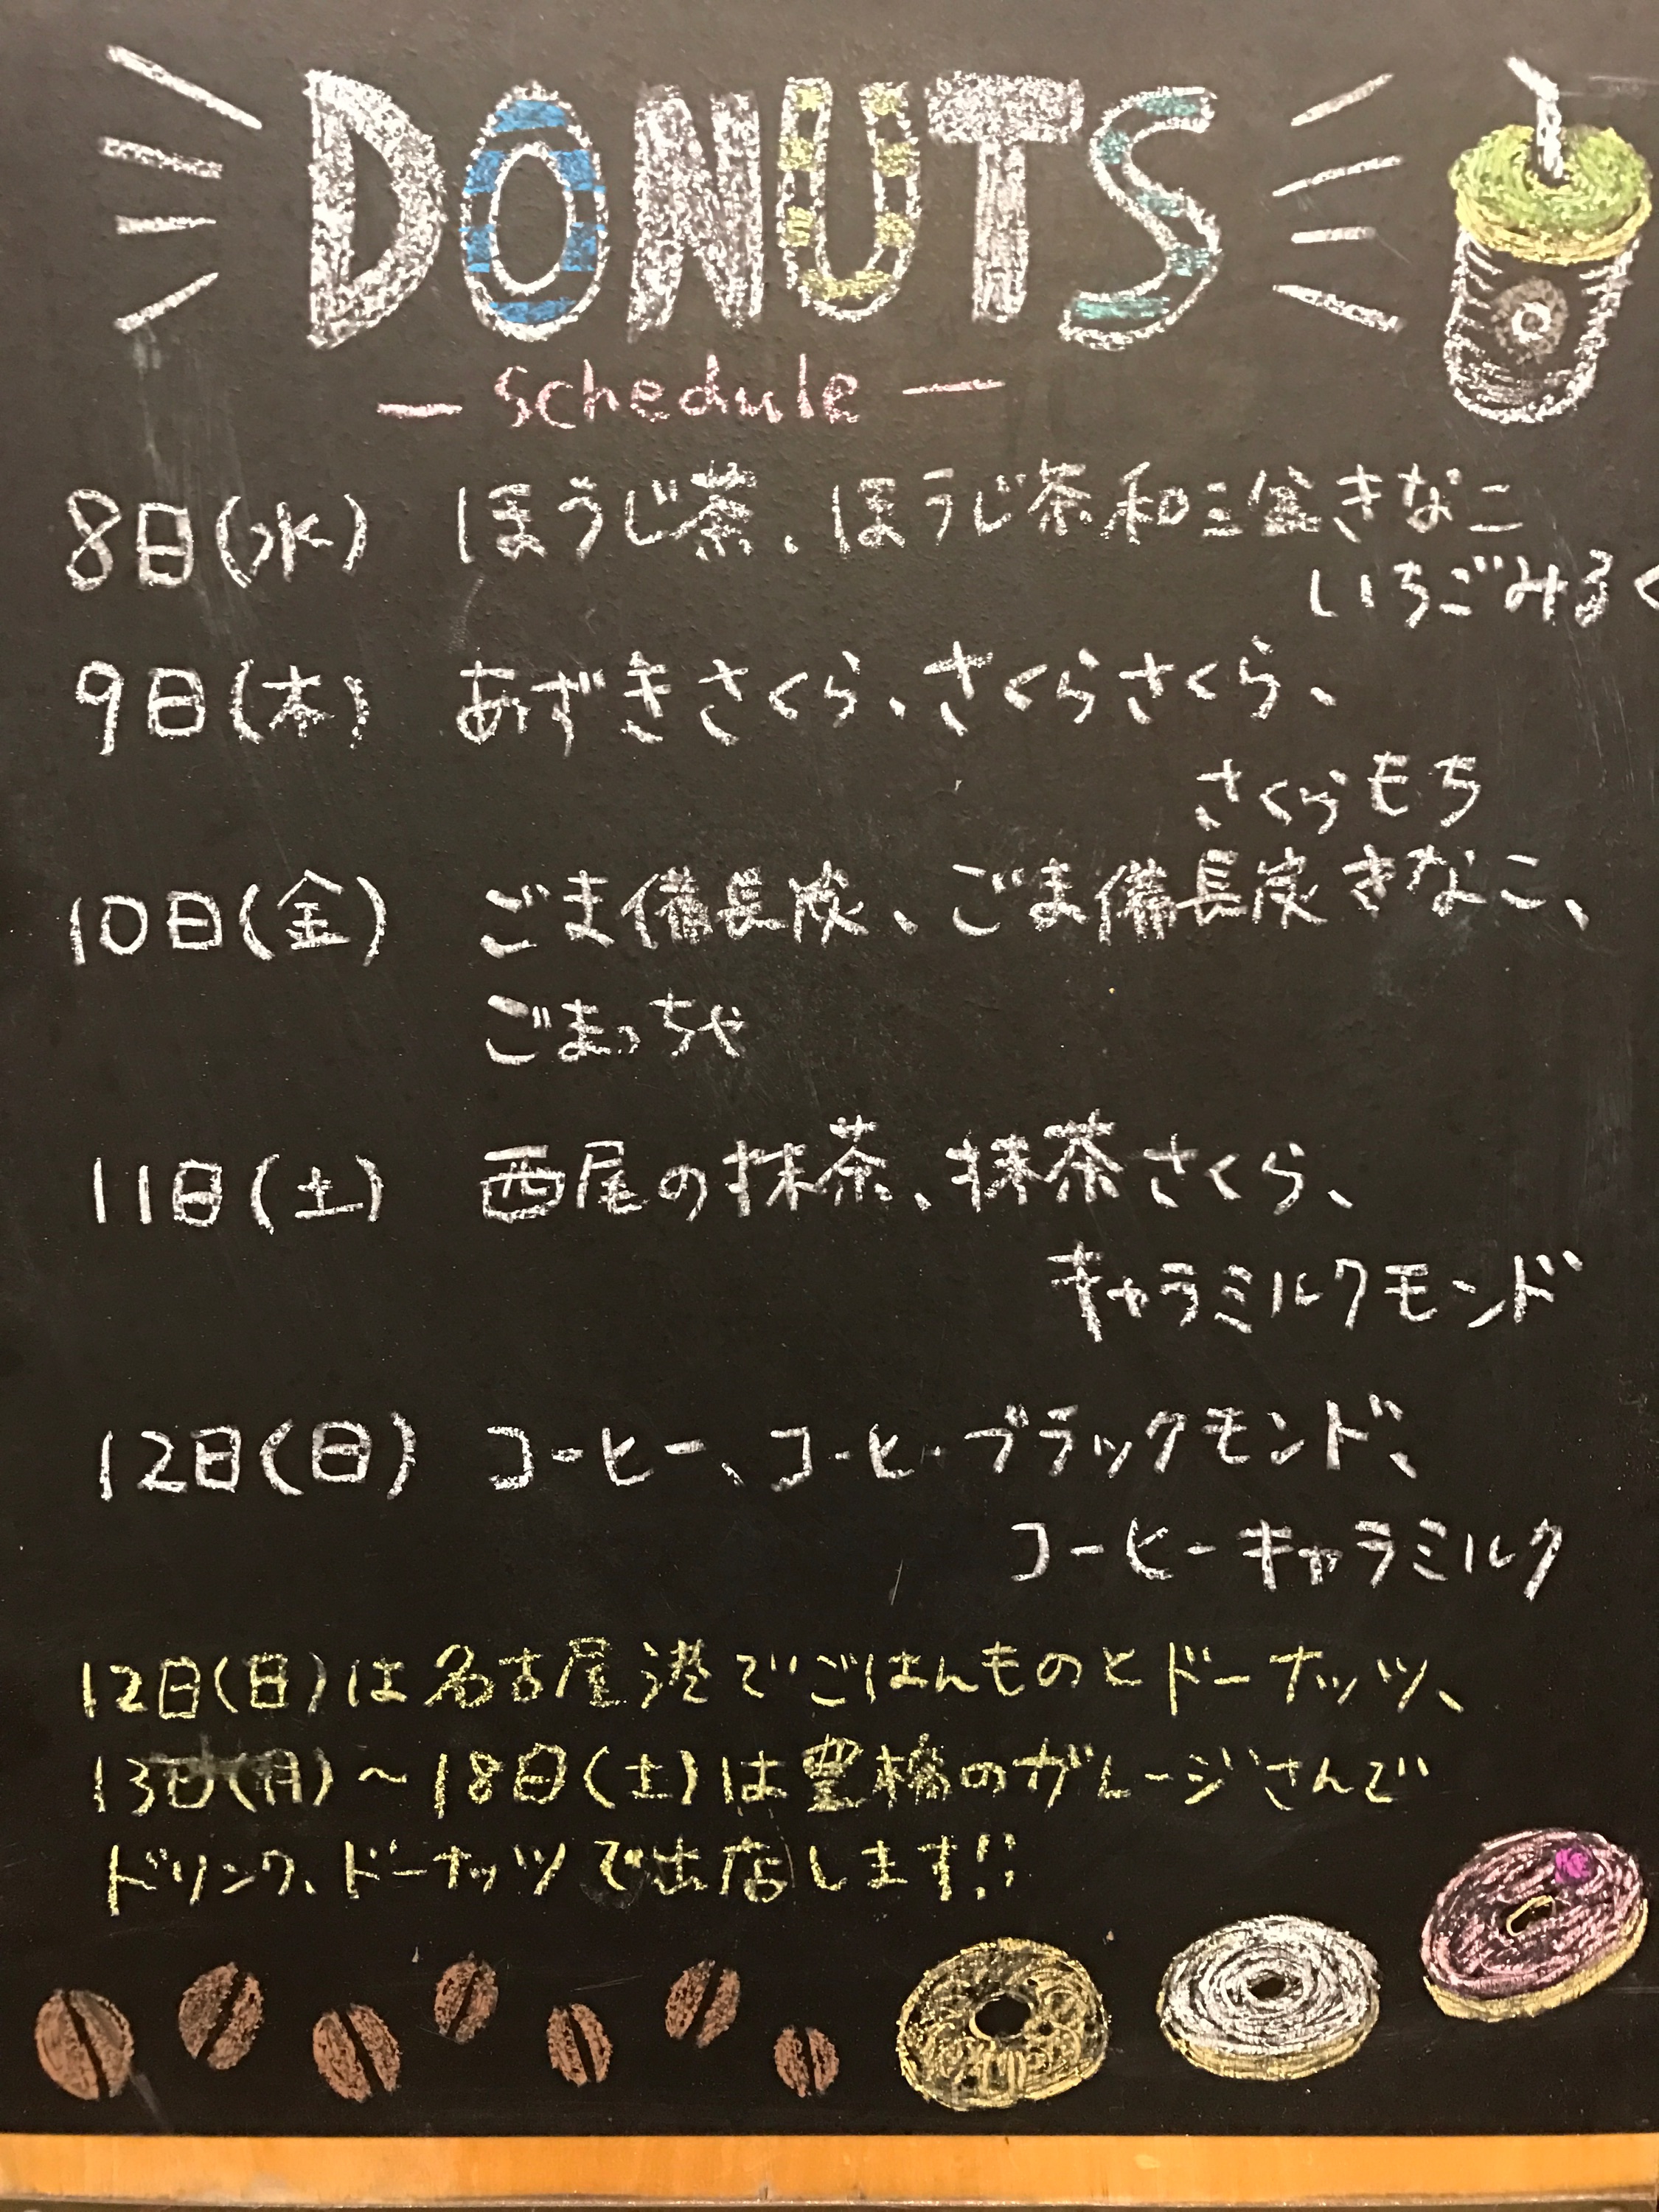 DONUTS
— schedule —
8日(水) ほうじ茶、ほうじ茶和三盆きなこ
いちごみるく
9日(木) あずきさくら、さくらさくら、
さくらもち
10日(金) ごま備長炭、ごま備長炭きなこ、
ごまっちゃ
11日(土) 西尾の抹茶、抹茶さくら、
キャラミルクモンド
12日(日) コーヒー、コーヒーブラックモンド、
コーヒーキャラミルク
12日(日)は名古屋港でごはんものとドーナッツ、
13日(月)〜18日(土)は豊橋のガレージさんで
ドリンク、ドーナッツで出店します!!